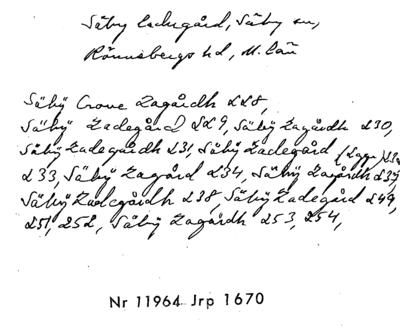 Säby Ladugård, Säby sn,
Rönnebergs hd, M. län
Säbÿ Crono Lagårdh 228,
Säbÿ Ladegård 229, Säbÿ Lagårdh 230,
Säbÿ Ladegårdh 231, Säbÿ Ladegård
233, Säbÿ Lagård 234, Säbÿ Lagårdh 237,
Säbÿ Ladegårdh 238, Säbÿ Ladegård 249,
251, 252, Säbÿ Lagårdh 253, 254,
Nr 11964 Jrp 1670